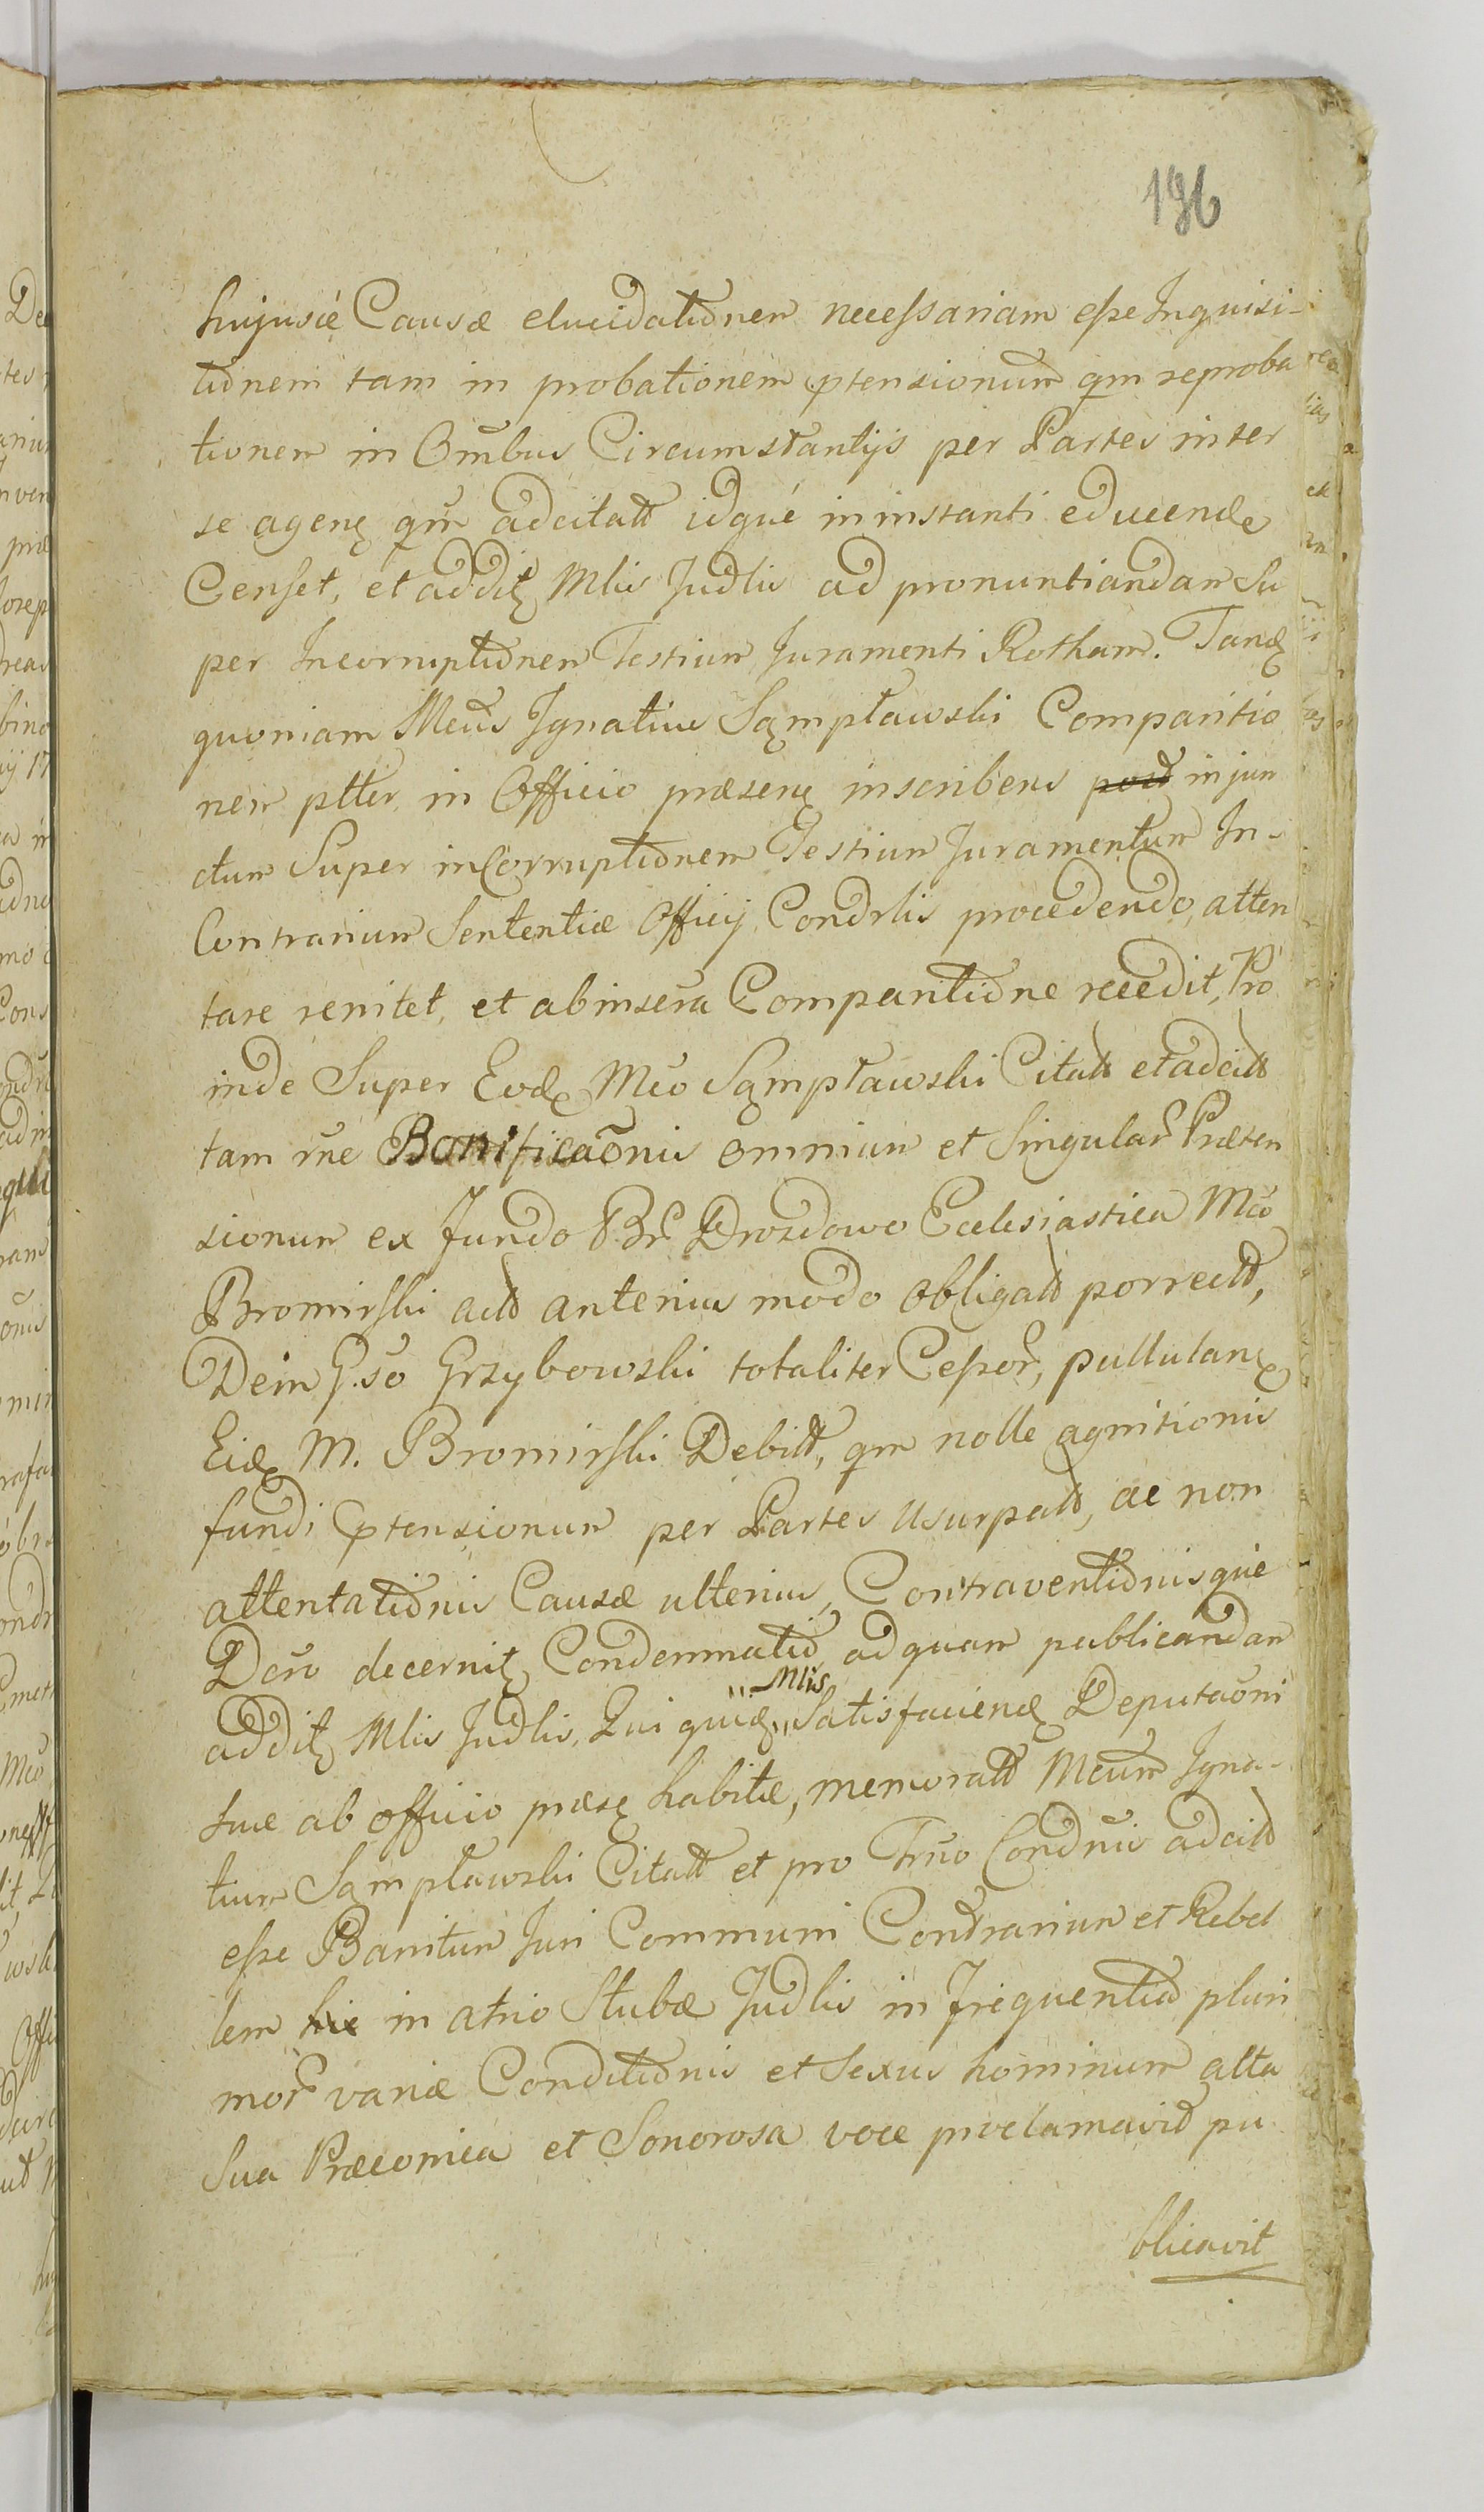 196
hujusce Causæ elucidationem necessariam esse Inquisi-
tionem tam in probationem ptensionum qm reproba
tionem in Omnibus Circumstantijs per Partes inter
se agen qm adcitatt idque in instanti educende
Censet, et addit Mlis Judlis ad pronuntiandam Su
per Incorruptionem Testium Juramenti Rotham. Tand
quoniam Mcus Ignatius Sąmpławski Comparitio
nem ptter in Officio præsen inscribens post injun
ctum Super inCorruptionem Testium Juramentum In-
Contrarium Sententiæ Officij Condrlis procedendo, atten
tare renitet, et ab inserta Comparitione recedit, Pro
inde Super Eod Mco Sąmpławski Citatt et adcitt
tam rne Bonificaonis omnium et Singular Præten
sionum ex fundo Br Drozdowo Ecclesiastica Mco
Bromirski actt anterius modo obligatt porrectt,
Dein G.so Grzybowski totaliter Cessor, pullulan
Eid M. Bromirski Debitt, qm nolle agnitionis
fundi ptensionum per Partes Usurpatt, ac non
attentationis Causæ ulterius, Contraventionisque
Dcro decernit Condemnatio, ad quam publicandam
addit Mlis Judlis, Qui quid
„ Mlis
„ Satisfaciend Deputaoni
suæ ab officio præs habitæ, memoratt Mcum Igna-
tium Sąmpławski Citatt et pro Trno Condnis adcitt
esse Banitum Juri Communi Contrarium et Rebel
lem hic in atrio Stubæ Judlis in frequentia pluri
mor variæ Conditionis et Sexus hominum alta
Sua Præconica et Sonorosa voce proclamavit pu
blicavit